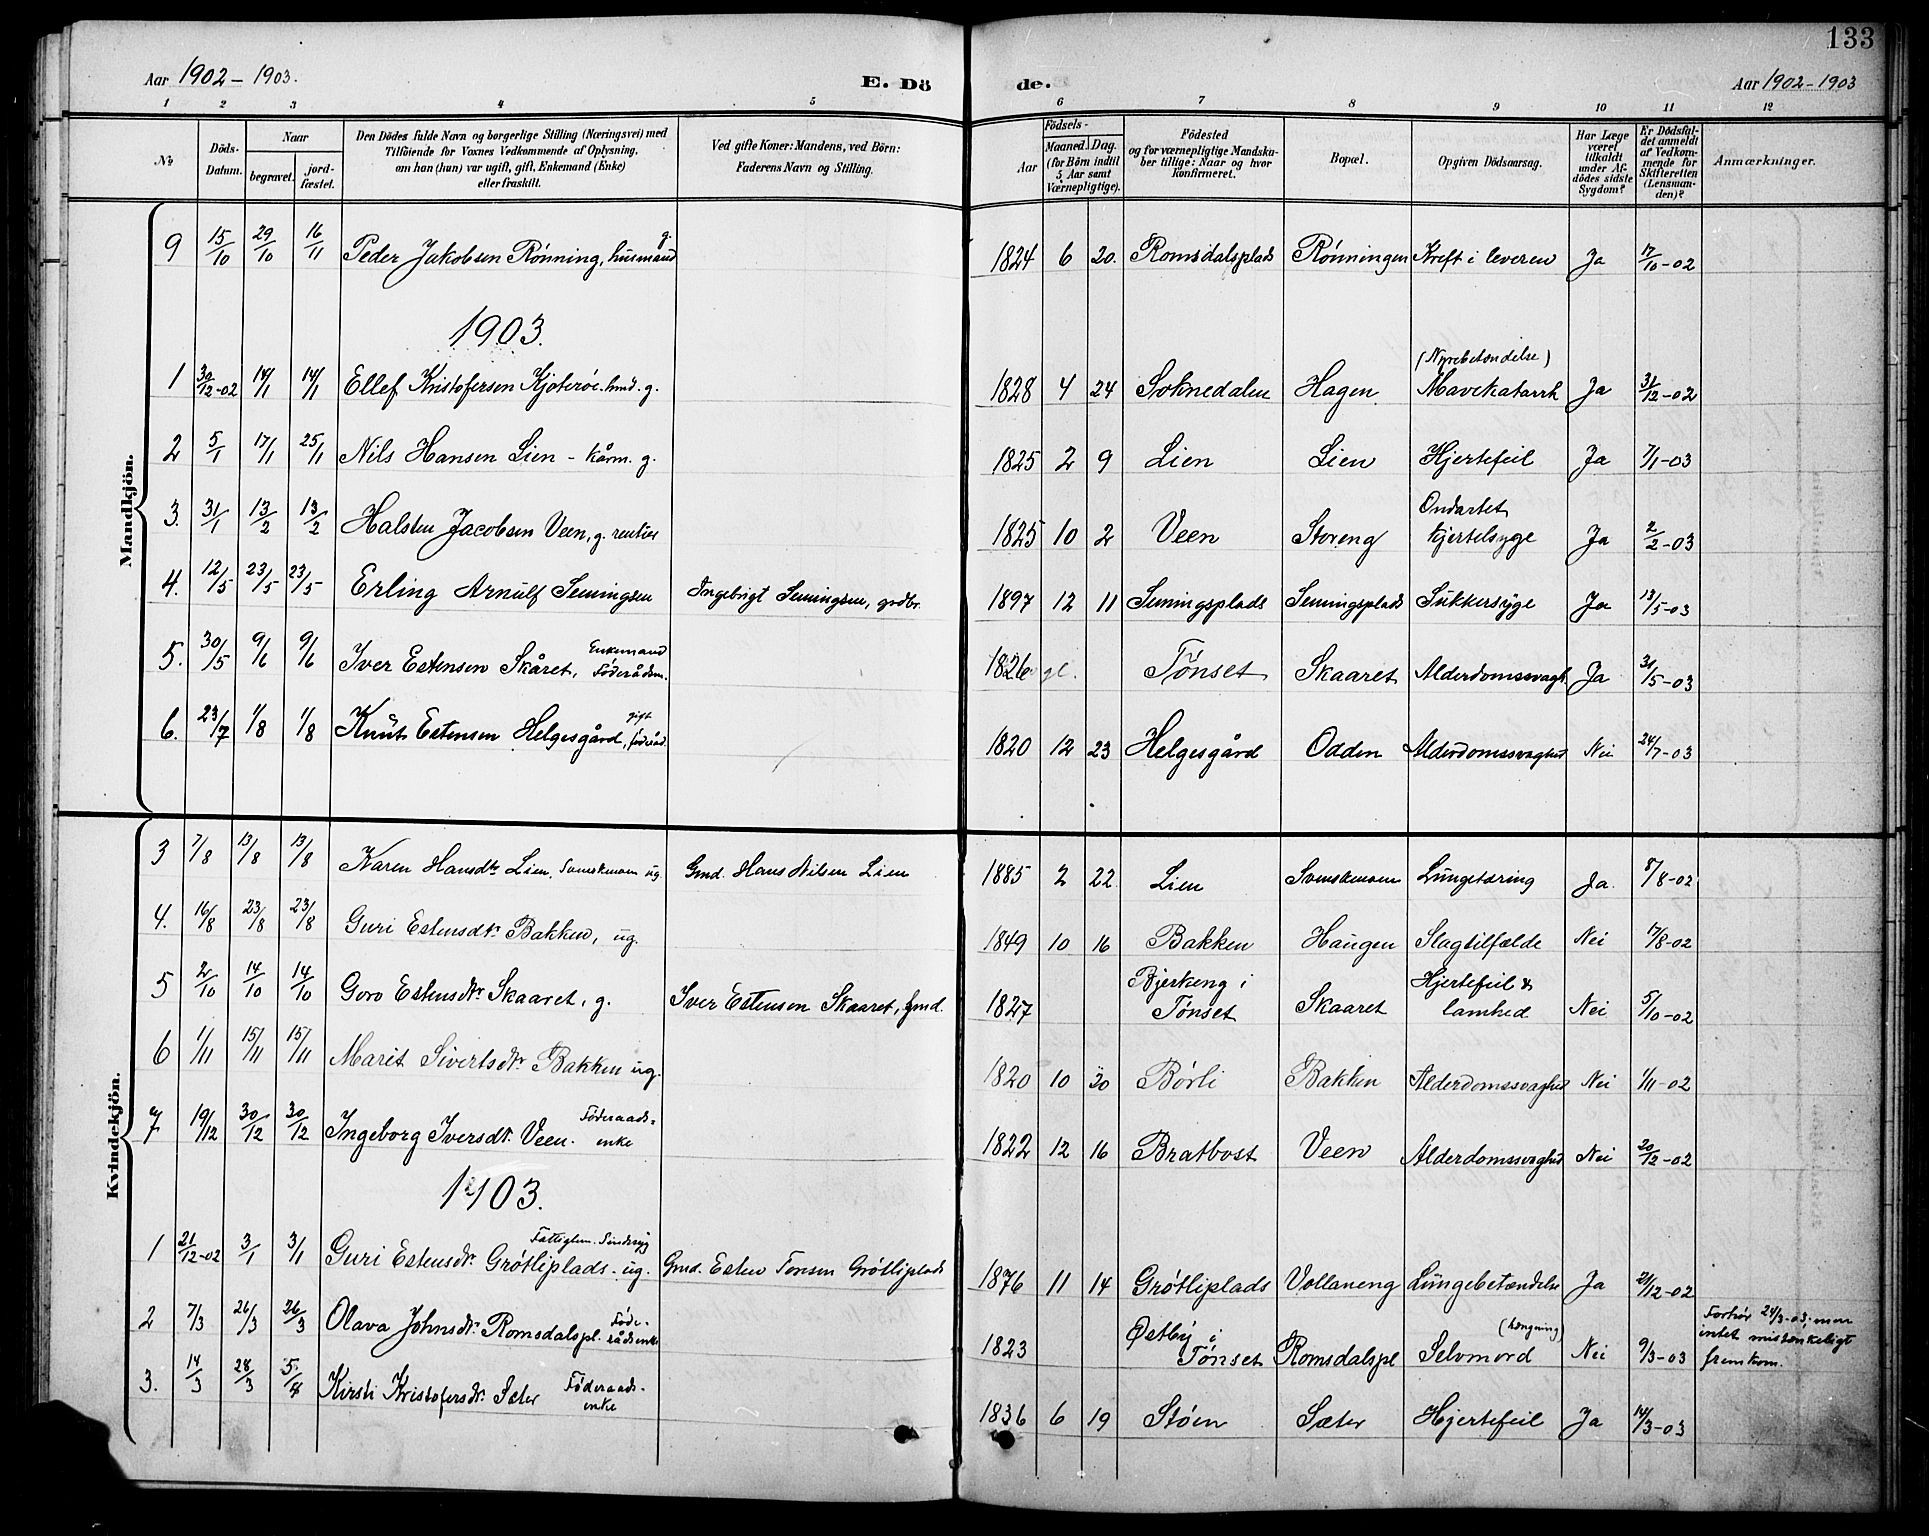 133
Aar 1902 - 1903. E. Dö de. Aar 1902 - 1903
1 2 3 4 5 6 7 8 9 10 11 12
No
Döds-
Datum.
Naar
begravet.
jord-
fæstet.
Den Dödes fulde Navn og borgerlige Stilling (Næringsvei) med
Tilföiende for Voxnes Vedkommende af Oplysning,
om han (hun) var ugift, gift, Enkemand (Enke)
eller fraskilt.
Ved gifte Koner: Mandens, ved Börn:
Faderens Navn og Stilling.
Födsels-
Aar
Maaned. Dag.
(for Börn indtil
5 Aar samt
Værnepligtige).
Födested
og for værnepligtige Mandska-
ber tillige: Naar og hvor
konfirmeret.
Bopæl.
Opgiven Dödsaarsag.
Har Læge
været
tilkaldt
under Af-
dödes sidste
Sygdom?
Er Dödsfal-
det anmeldt
af Vedkom-
mende for
Skifteretten
(Lensman-
den)?
Anmærkninger.
Mandkjön.
9 15/10 29/10 16/11 Peder Jakobsen Rønning, husmand g. 1824 6 20. Romsdalsplads Rønningen Kreft i leveren Ja 17/10-02
1903.
1 30/12-02 14/1 14/1 Ellef Kristofersen Kjøterøe. hmd. g. 1828 4 24 Soknedalen Hagen (Nyrebetændelse) Mavekatarrh Ja 31/12-02
2 5/1 17/1 25/1 Nils Hansen Lien - kårm. g. 1825 2 9 Lien Lien Hjertefeil Ja 7/1-03
3. 31/1 13/2 13/2 Halsten Jacobsen Veen, g. rentier 1825 10 2 Veen Storeng Ondartet kjertelsyge Ja 2/2-03
4. 12/5 23/5 23/5 Erling Arnulf Semingsen Ingebrigt Semingsen, grdbr. 1897 12 11 Semingsplads Semingsplads Sukkersyge Ja 13/5-03
5. 30/5 9/6 9/6 Iver Estensen Skåret, Enkemand Føderådsm. 1826 gl. Tønset Skaaret Alderdomssvagh. Ja 31/5-03
6. 23/7 1/8 1/8 Knut Estensen Helgesgård, gift føderåd. 1820 12 23 Helgesgård Odden Alderdomssvaghed Nei 24/7-03
Kvindekjön.
3 7/8 13/8 13/8 Karen Hansdtr Lien, Svenskmoen ug. Gmd. Hans Nilsen Lien 1885 2 22 Lien Svenskmoen Lungetæring Ja. 8/8-02
4. 16/8 23/8 23/8 Guri Estensdtr. Bakken, ug. 1849 10 16 Bakken Haugen Slagtilfælde Nei 17/8-02
5 2/10 14/10 14/10 Goro Estensdtr Skaaret, g. Iver Estensen Skaaret, Gmd. 1827 Bjerkeng i Tønset Skaaret Hjertefeil & lamhed Nei 5/10-02
6 1/11 15/11 15/11 Marit Sivertsdtr Bakken ug. 1820 10 30 Børli Bakken Alderdomssvaghed Nei 1/11-02
7 19/12 30/12 30/12 Ingeborg Iversdtr. Veen. Føderaads-enke 1822 12 16 Bratbost Veen Alderdomssvaghed Nei 20/12-02
1903.
1 21/12-02 3/1 3/1 Guri Estensdtr. Grøtliplads - ug. Fattiglem. Sindssyg Gmd. Esten Tonsen Grøtliplads 1876 11 14 Grøtliplads Vollaneng Lungebetændelse Ja 21/12-02
2 7/3 26/3 26/3 Olava Johnsdtr. Romsdalspl. Føde-rådsenke 1823 Østby i Tønset Romsdalspl Selvmord (hængning) Nei 9/3-03 Forhør 24/3-03, men intet mistænkeligt fremkom.
3. 14/3 28/3 5/4 Kirsti Kristofersdtr. Sæter Føderaads-enke 1836 6 19 Støen Sæter Hjertefeil Ja 14/3-03